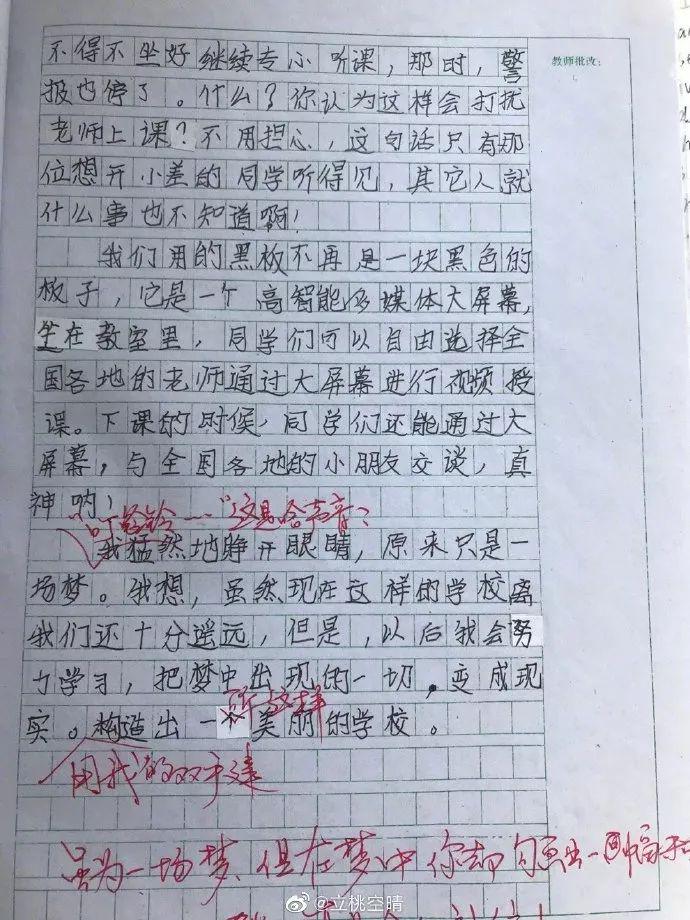 教师批改:
不得不坐好继续专心听课，那时，警
报也停了。什么？你认为这样会打扰
老师上课？不用担心，这句话只有那
位想开小差的同学听得见，其它人就
什么事也不知道啊！
我们用的黑板不再是一块黑色的
板子，它是一个高智能多媒体大屏幕，
坐在教室里，同学们可以自由选择全
国各地的老师通过大屏幕进行视频授
课。下课的时候，同学们还能通过大
屏幕，与全国各地的小朋友交谈，真
神呐！
"叮铃铃……"这是啥声音？
我猛然地睁开眼睛，原来只是一
场梦。我想，虽然现在这样的学校离
我们还十分遥远，但是，以后我会努
力学习，把梦中出现的一切，变成现
所这样
实。构造出一个美丽的学校。
用我的双手建
虽为一场梦，但在梦中你却勾画出一
@立桃空晴